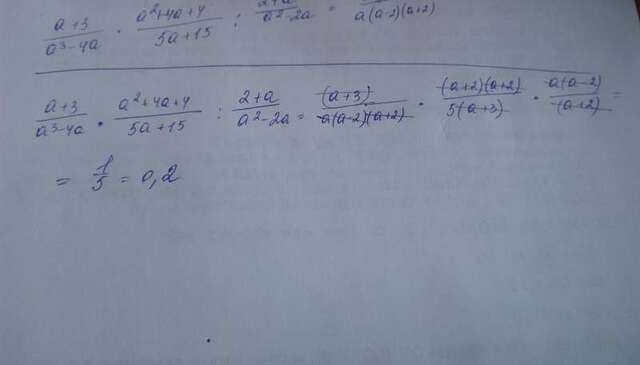 (a+3)/(a³-4a) · (a²+4a+4)/(5a+15) : (2+a)/(a²-2a) = /(a(a-2)(a+2))
(a+3)/(a³-4a) · (a²+4a+4)/(5a+15) : (2+a)/(a²-2a) = (a+3)/(a(a-2)(a+2)) · ((a+2)(a+2))/(5(a+3)) · (a(a-2))/((a+2)) =
= 1/5 = 0,2